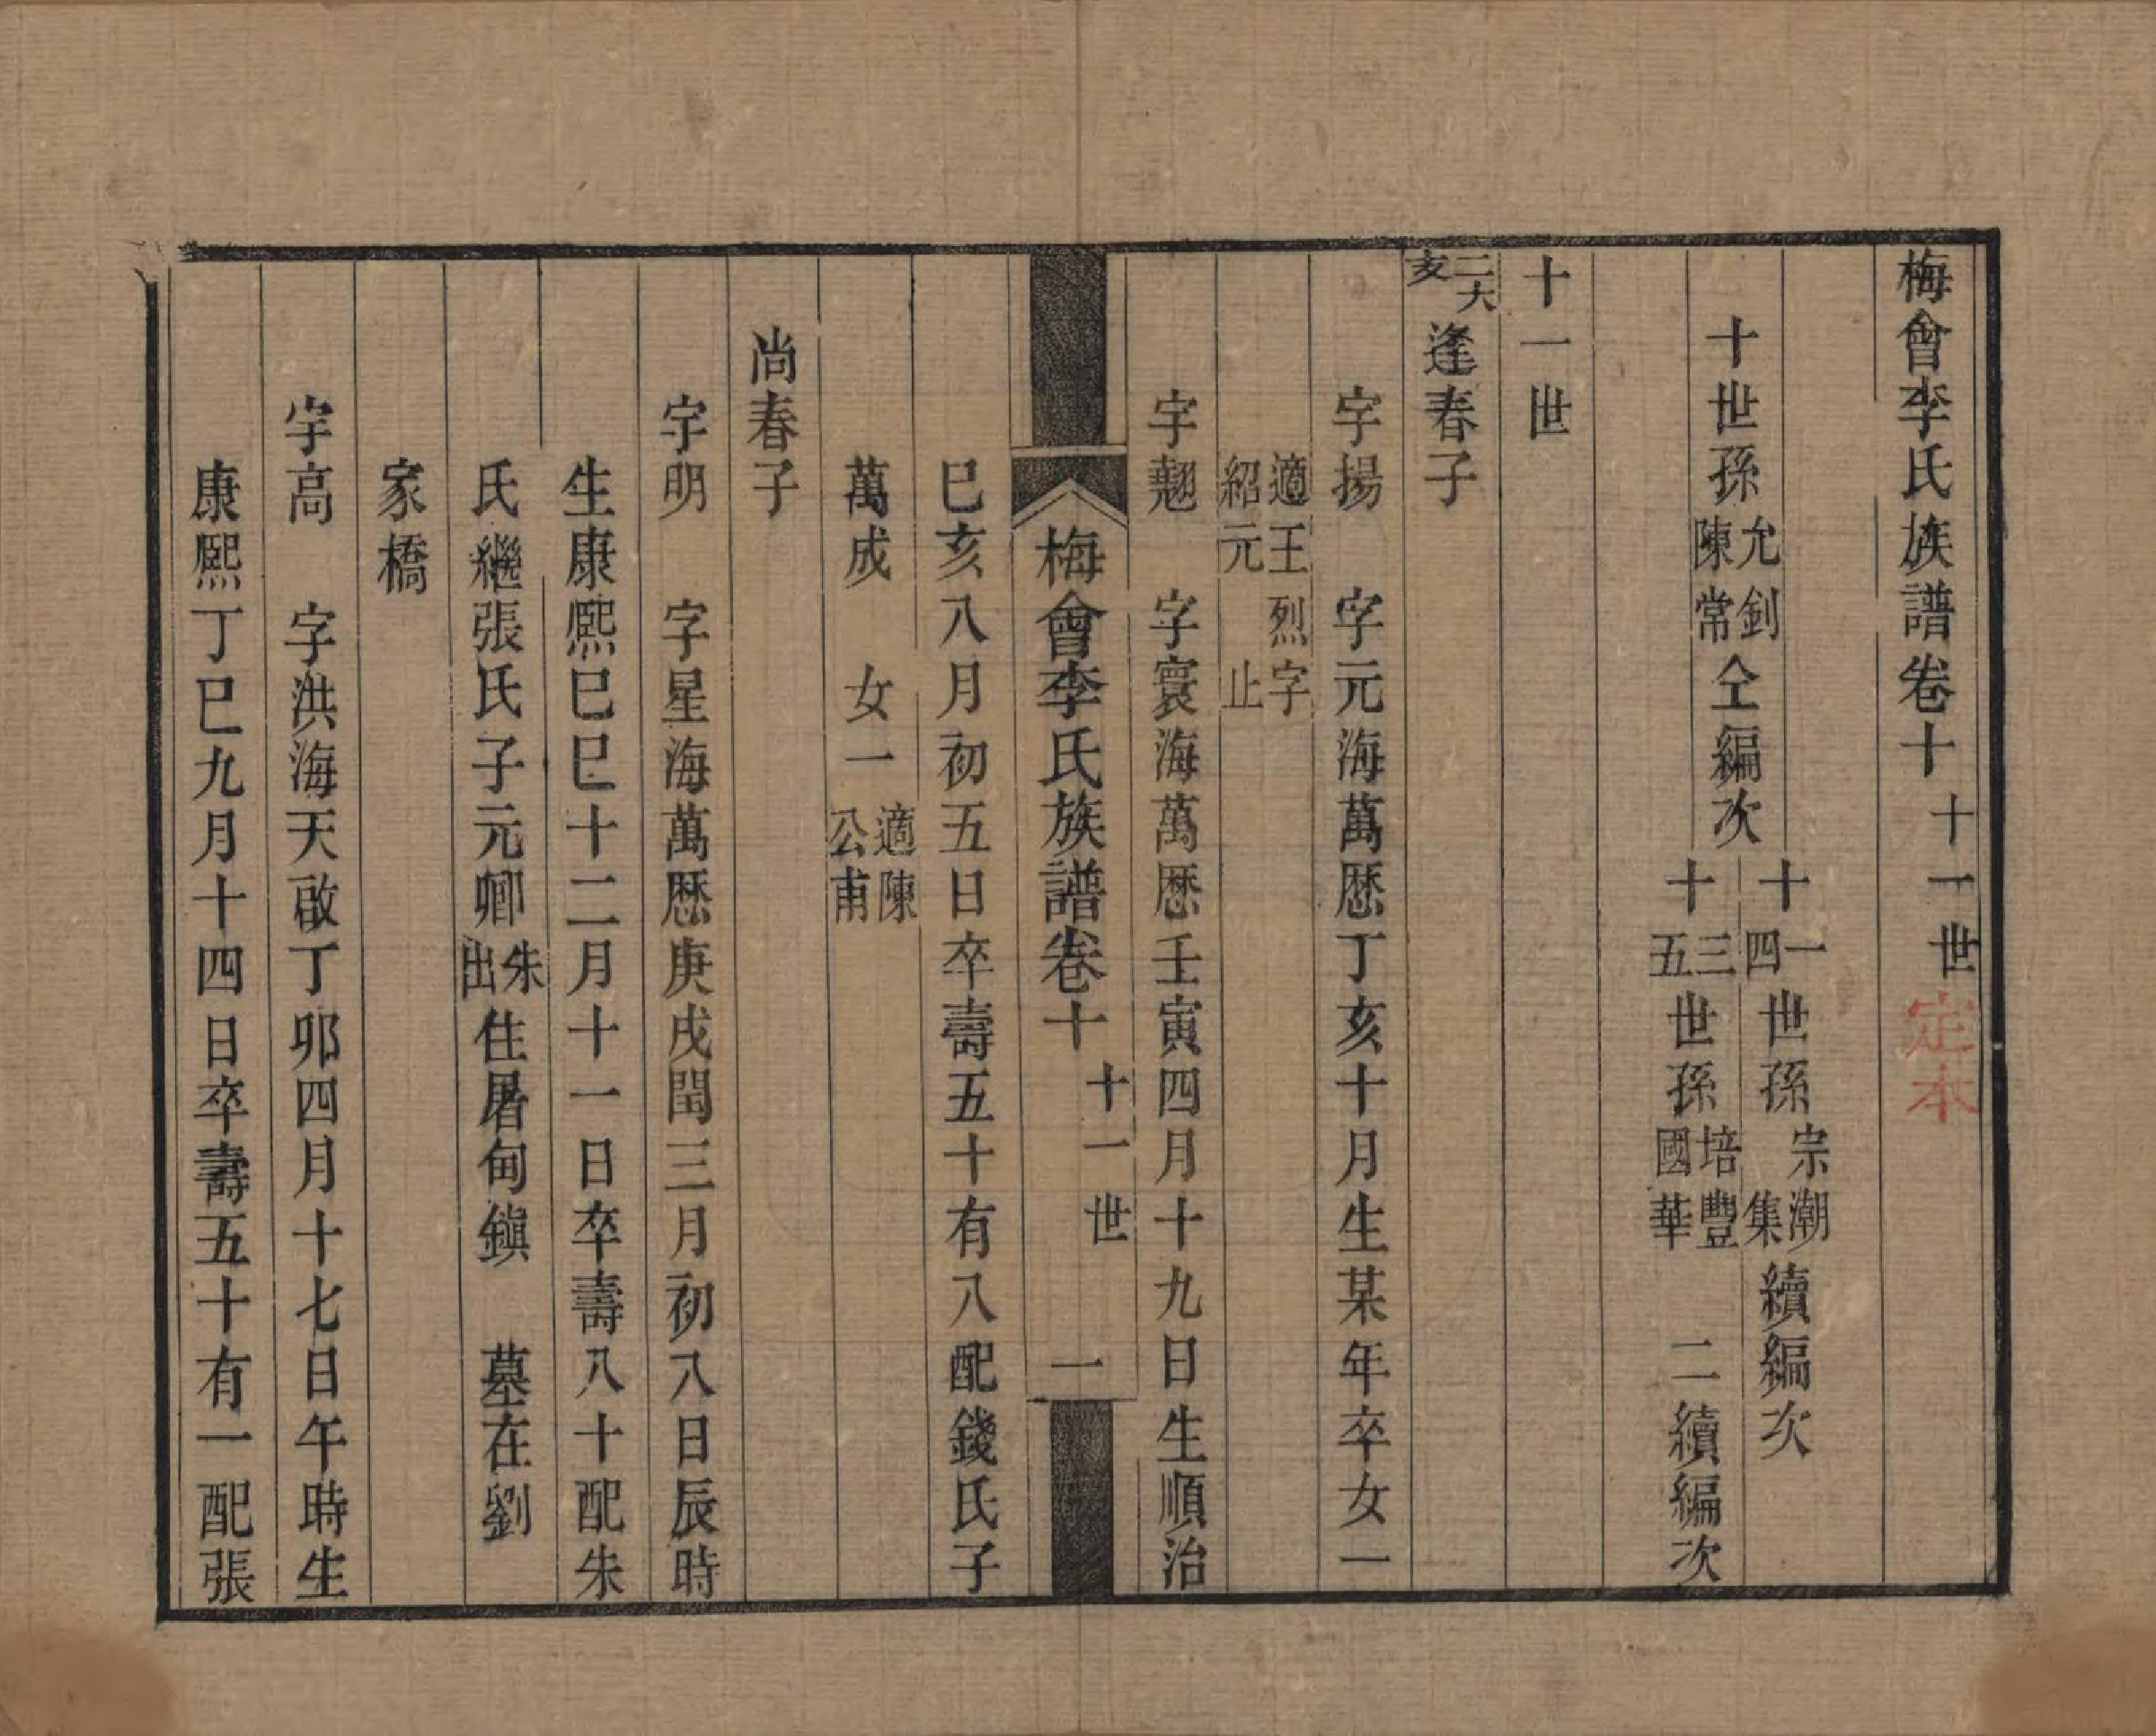 梅會李氏族譜卷十 十一世 定本
十世孫允釗陳常仝編次
十一四世孫宗潮集續編次
十三五世孫培豐國華 二續編次
十一世
二大亥 逢春子
宇揚 字元海萬厯丁亥十月生某年卒女一
適王烈字紹元止
宇翹 字寰海萬厯壬寅四月十九日生順治
梅會李氏族譜卷十 十一世 一
巳亥八月初五日卒壽五十有八配錢氏子
萬成 女一 適陳公甫
尚春子
宇明 字星海萬厯庚戌閏三月初八日辰時
生康熙巳巳十二月十一日卒壽八十配朱
氏繼張氏子元卿朱出住屠甸鎭 墓在劉
家橋
宇高 字洪海天啟丁卯四月十七日午時生
康熙丁巳九月十四日卒壽五十有一配張